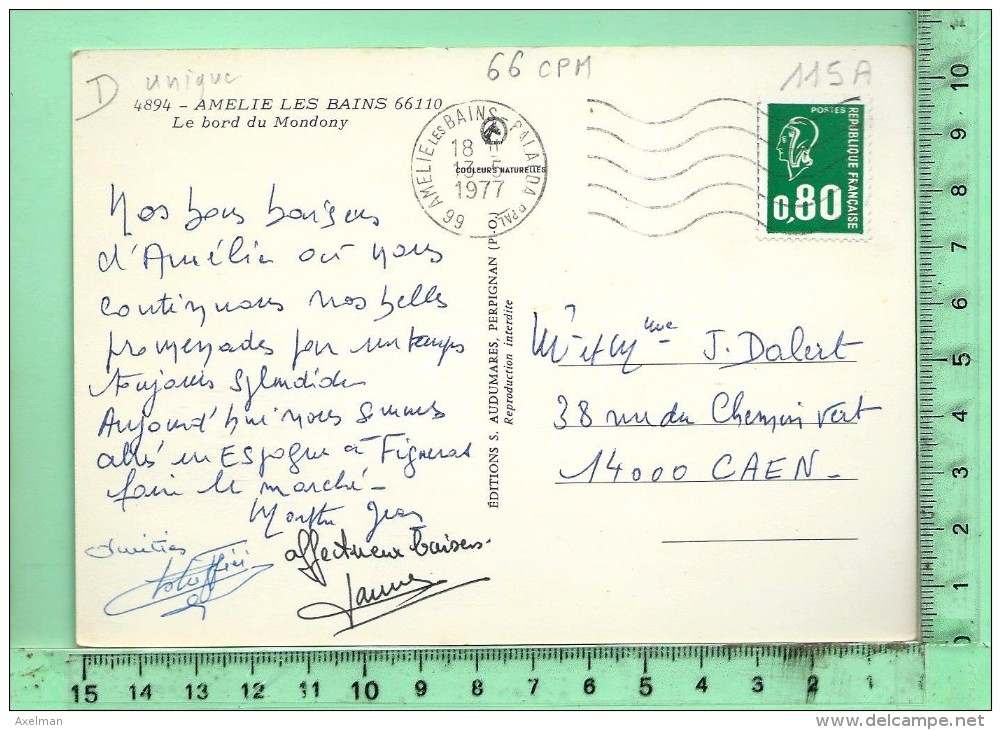 D unique
66 CPM
115A
4894 - AMELIE LES BAINS 66110
Le bord du Mondony
66 AMELIE LES BAINS-PALALDA P.PALES
18 H
13-5
1977
COULEURS NATURELLES
POSTES
REPUBLIQUE FRANÇAISE
0,80
Nos bons baisers
d'Amélie où nous
continuons nos belles
promenades par un temps
toujours splendide
Aujourd'hui nous sommes
allés en Espagne à Figueras
faire le marché -
Amitiés
affectueux baisers.
ÉDITIONS S. AUDUMARES, PERPIGNAN (P.-O.)
Reproduction interdite
Mr et Mme J. Dalert
38 rue du Chemin vert
14000 CAEN -
10
9
8
7
6
5
4
3
2
1
0
15 14 13 12 11 10 9 8 7 6 5 4 3 2 1
Axelman
delcampe.net